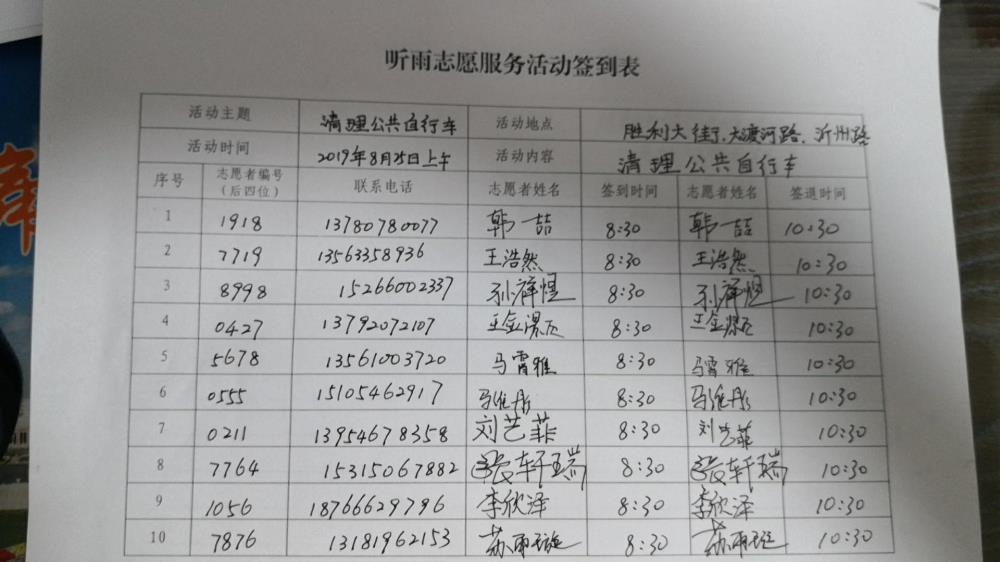 听雨志愿服务活动签到表
活动主题 清理公共自行车 活动地点 胜利大街、大渡河路、沂州路
活动时间 2019年8月25日上午 活动内容 清理公共自行车
序号 志愿者编号(后四位) 联系电话 志愿者姓名 签到时间 志愿者姓名 签退时间
1 1918 13780780077 韩一喆 8:30 韩一喆 10:30
2 7719 13563358936 王浩然 8:30 王浩然 10:30
3 8998 15266002337 孙祥煜 8:30 孙祥煜 10:30
4 0427 13792072107 8:30 10:30
5 5678 13561003720 马霄雅 8:30 马霄雅 10:30
6 0555 15105462917 马维彤 8:30 马维彤 10:30
7 0211 13954678358 刘艺菲 8:30 刘艺菲 10:30
8 7764 15315067882 张轩瑞 8:30 张轩瑞 10:30
9 1056 18766629796 李欣泽 8:30 李欣泽 10:30
10 7876 13181962153 苏雨璇 8:30 苏雨璇 10:30